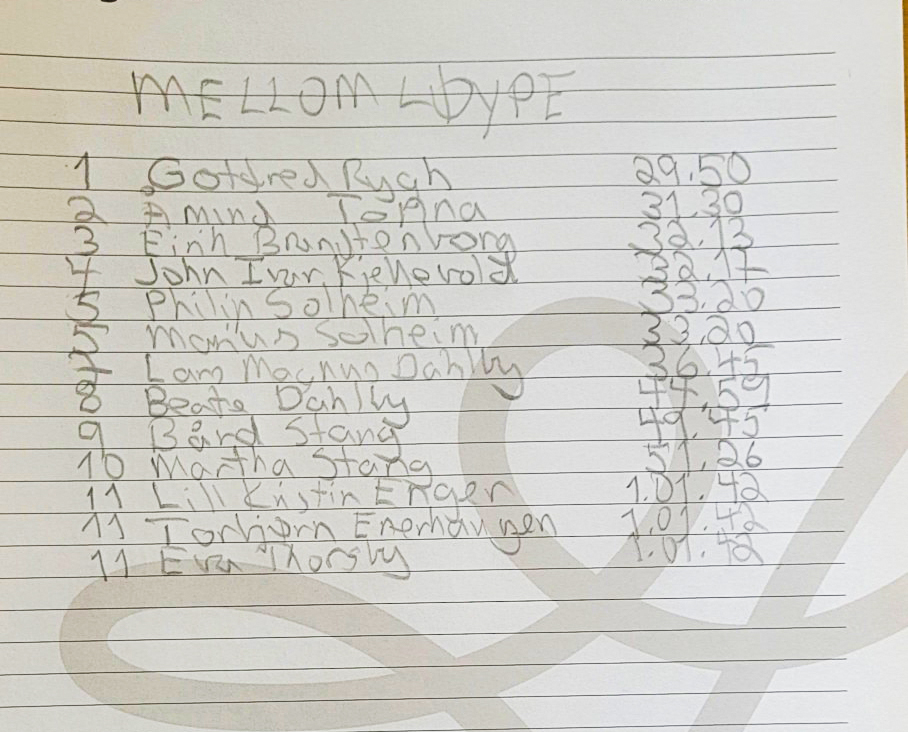 MELLOM LØYPE
1 Gotdred Rygh 29.50
2 Amind Topna 31.30
3 Einh Brunstenborg 32.13
4 John Ivar Kjellevold 32.17
5 Philip Solheim 33.20
5 Marius Solheim 33.20
7 Lars Magnus Dahlby 36.45
8 Beate Dahlby 44.59
9 Bård Stang 49.45
10 Martha Stang 51.26
11 Lill Kristin Enger 1.01.42
11 Torbjørn Enerhaugen 1.01.42
11 Eva Thorsby 1.01.42